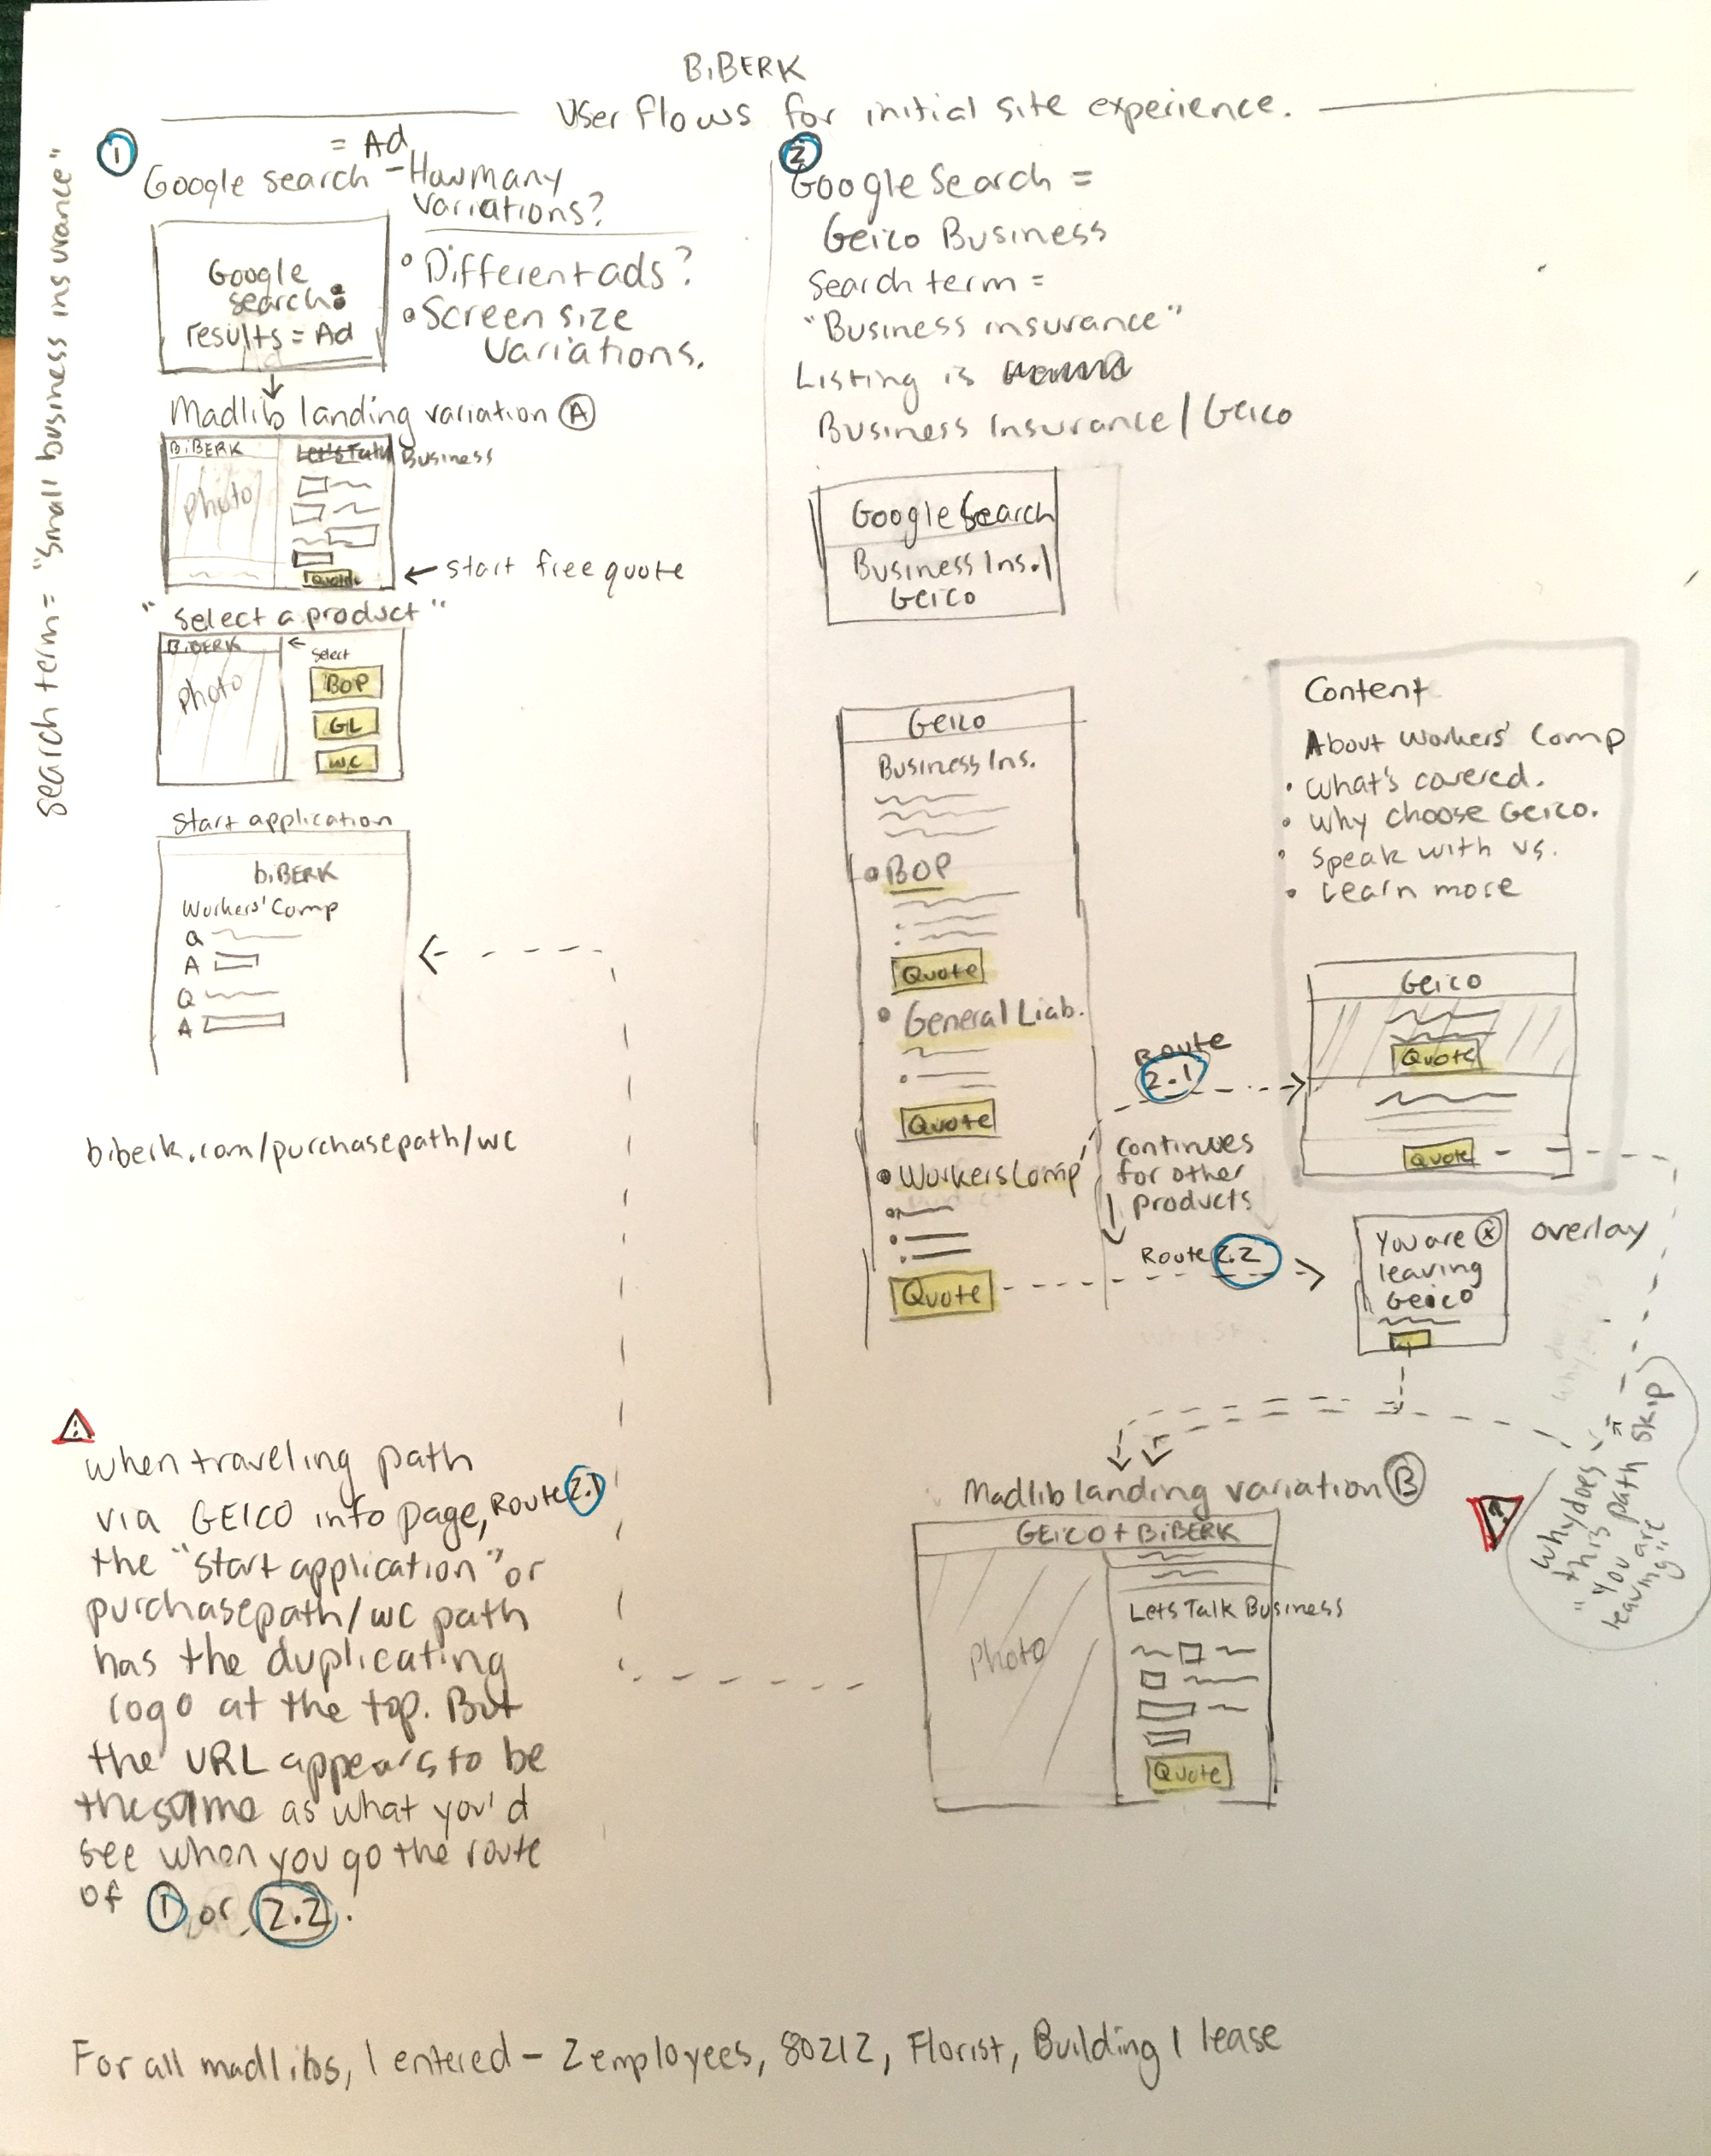 BiBERK
User flows for initial site experience.
Search term = "Small business insurance"
1
= Ad
Google search - How many
variations?
• Different ads?
• Screen size
variations.
Google
search:
results = Ad
Madlib landing variation A
BiBERK
Let's Talk Business
Photo
Quote
← start free quote
"Select a product"
BiBERK
← Select
Photo
BOP
GL
WC
Start application
biBERK
Workers' Comp
Q
A
Q
A
biberk.com/purchasepath/wc
when traveling path
via GEICO info page, Route 2.1
the "start application" or
purchasepath/wc path
has the duplicating
logo at the top. But
the URL appears to be
the same as what you'd
see when you go the route
of 1 or 2.2.
2
Google Search =
Geico Business
Search term =
"Business insurance"
Listing is
Business Insurance | Geico
Google Search
Business Ins. |
Geico
Geico
Business Ins.
• BOP
Quote
• General Liab.
Quote
• Workers Comp
Quote
Route
2.1
Continues
for other
products
Route 2.2
Content
About Workers' Comp
• What's covered.
• Why choose Geico.
• Speak with us.
• Learn more
Geico
Quote
Quote
You are X
leaving
Geico
overlay
Why does
this path skip
"You are
leaving"
?
Madlib landing variation B
GEICO + BiBERK
Photo
Lets Talk Business
Quote
For all madlibs, I entered - 2 employees, 80212, Florist, Building I lease